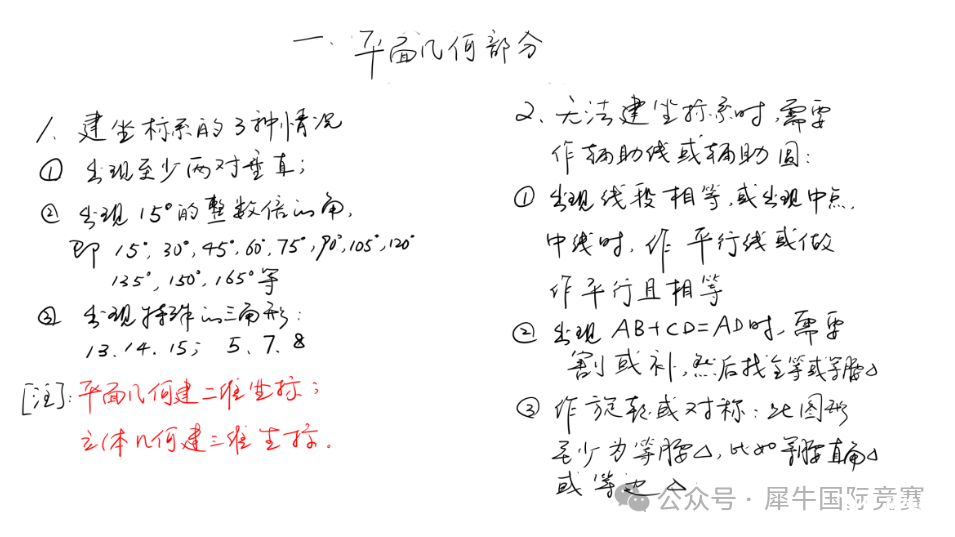 一、平面几何部分
1、建坐标系的3种情况
① 出现至少两对垂直;
② 出现15°的整数倍的角,
即 15°,30°,45°,60°,75°,90°,105°,120°
135°,150°,165°等
③ 出现特殊的三角形:
13.14.15; 5.7.8
[注]:平面几何建二维坐标;
立体几何建三维坐标.
2、无法建坐标系时,需要
作辅助线或辅助圆:
① 出现线段相等,或出现中点,
中线时,作平行线或做
作平行且相等
② 出现 AB+CD=AD时,需要
割或补,然后找全等或等腰△
③ 作旋转或对称:此图形
至少为等腰△,比如等腰直角△
或等边△
公众号·犀牛国际竞赛